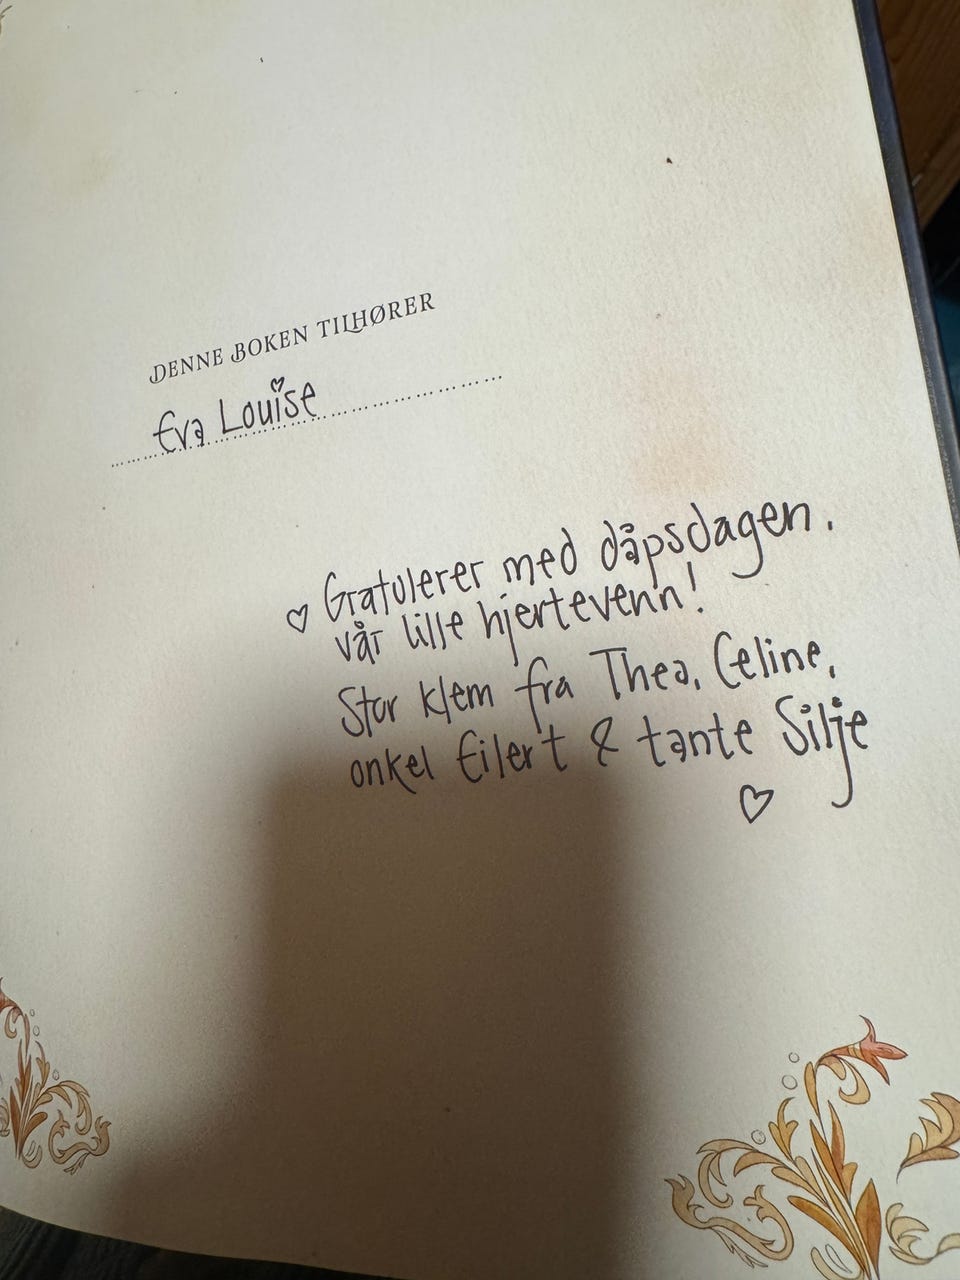 DENNE BOKEN TILHØRER
Eva Louise
♡ Gratulerer med dåpsdagen.
vår lille hjertevenn!
Stor klem fra Thea, Celine,
onkel Eilert & tante Silje
♡